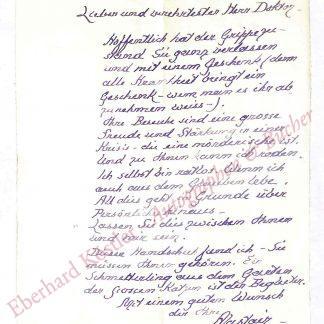 Lieber und verehrtester Herr Doktor -
Hoffentlich hat der Grippezu-
stand Sie ganz verlassen
und mit einem Geschenk (denn
alle Krankheit bringt ein
Geschenk - wenn man es ihr ab
zunehmen weiss -).
Ihre Besuche sind eine grosse
Freude und Stärkung in einer
Krisis - die eine mörderische ist.
Und zu Ihnen kann ich reden.
Ich selbst bin ratlos. Wenn ich
auch aus dem
All dies geht im Grunde über
Persönliches hinaus -
Lassen Sie dies zwischen Ihnen
und mir sein.
Diese Handschuh fand ich - Sie
müssen Ihnen gehören. Ein
Schmetterling aus dem Garten
der ist der Begleiter.
Mit einem guten Wunsch
bin Ihr
Alastair
Eberhard Köstler Autographen & Bücher